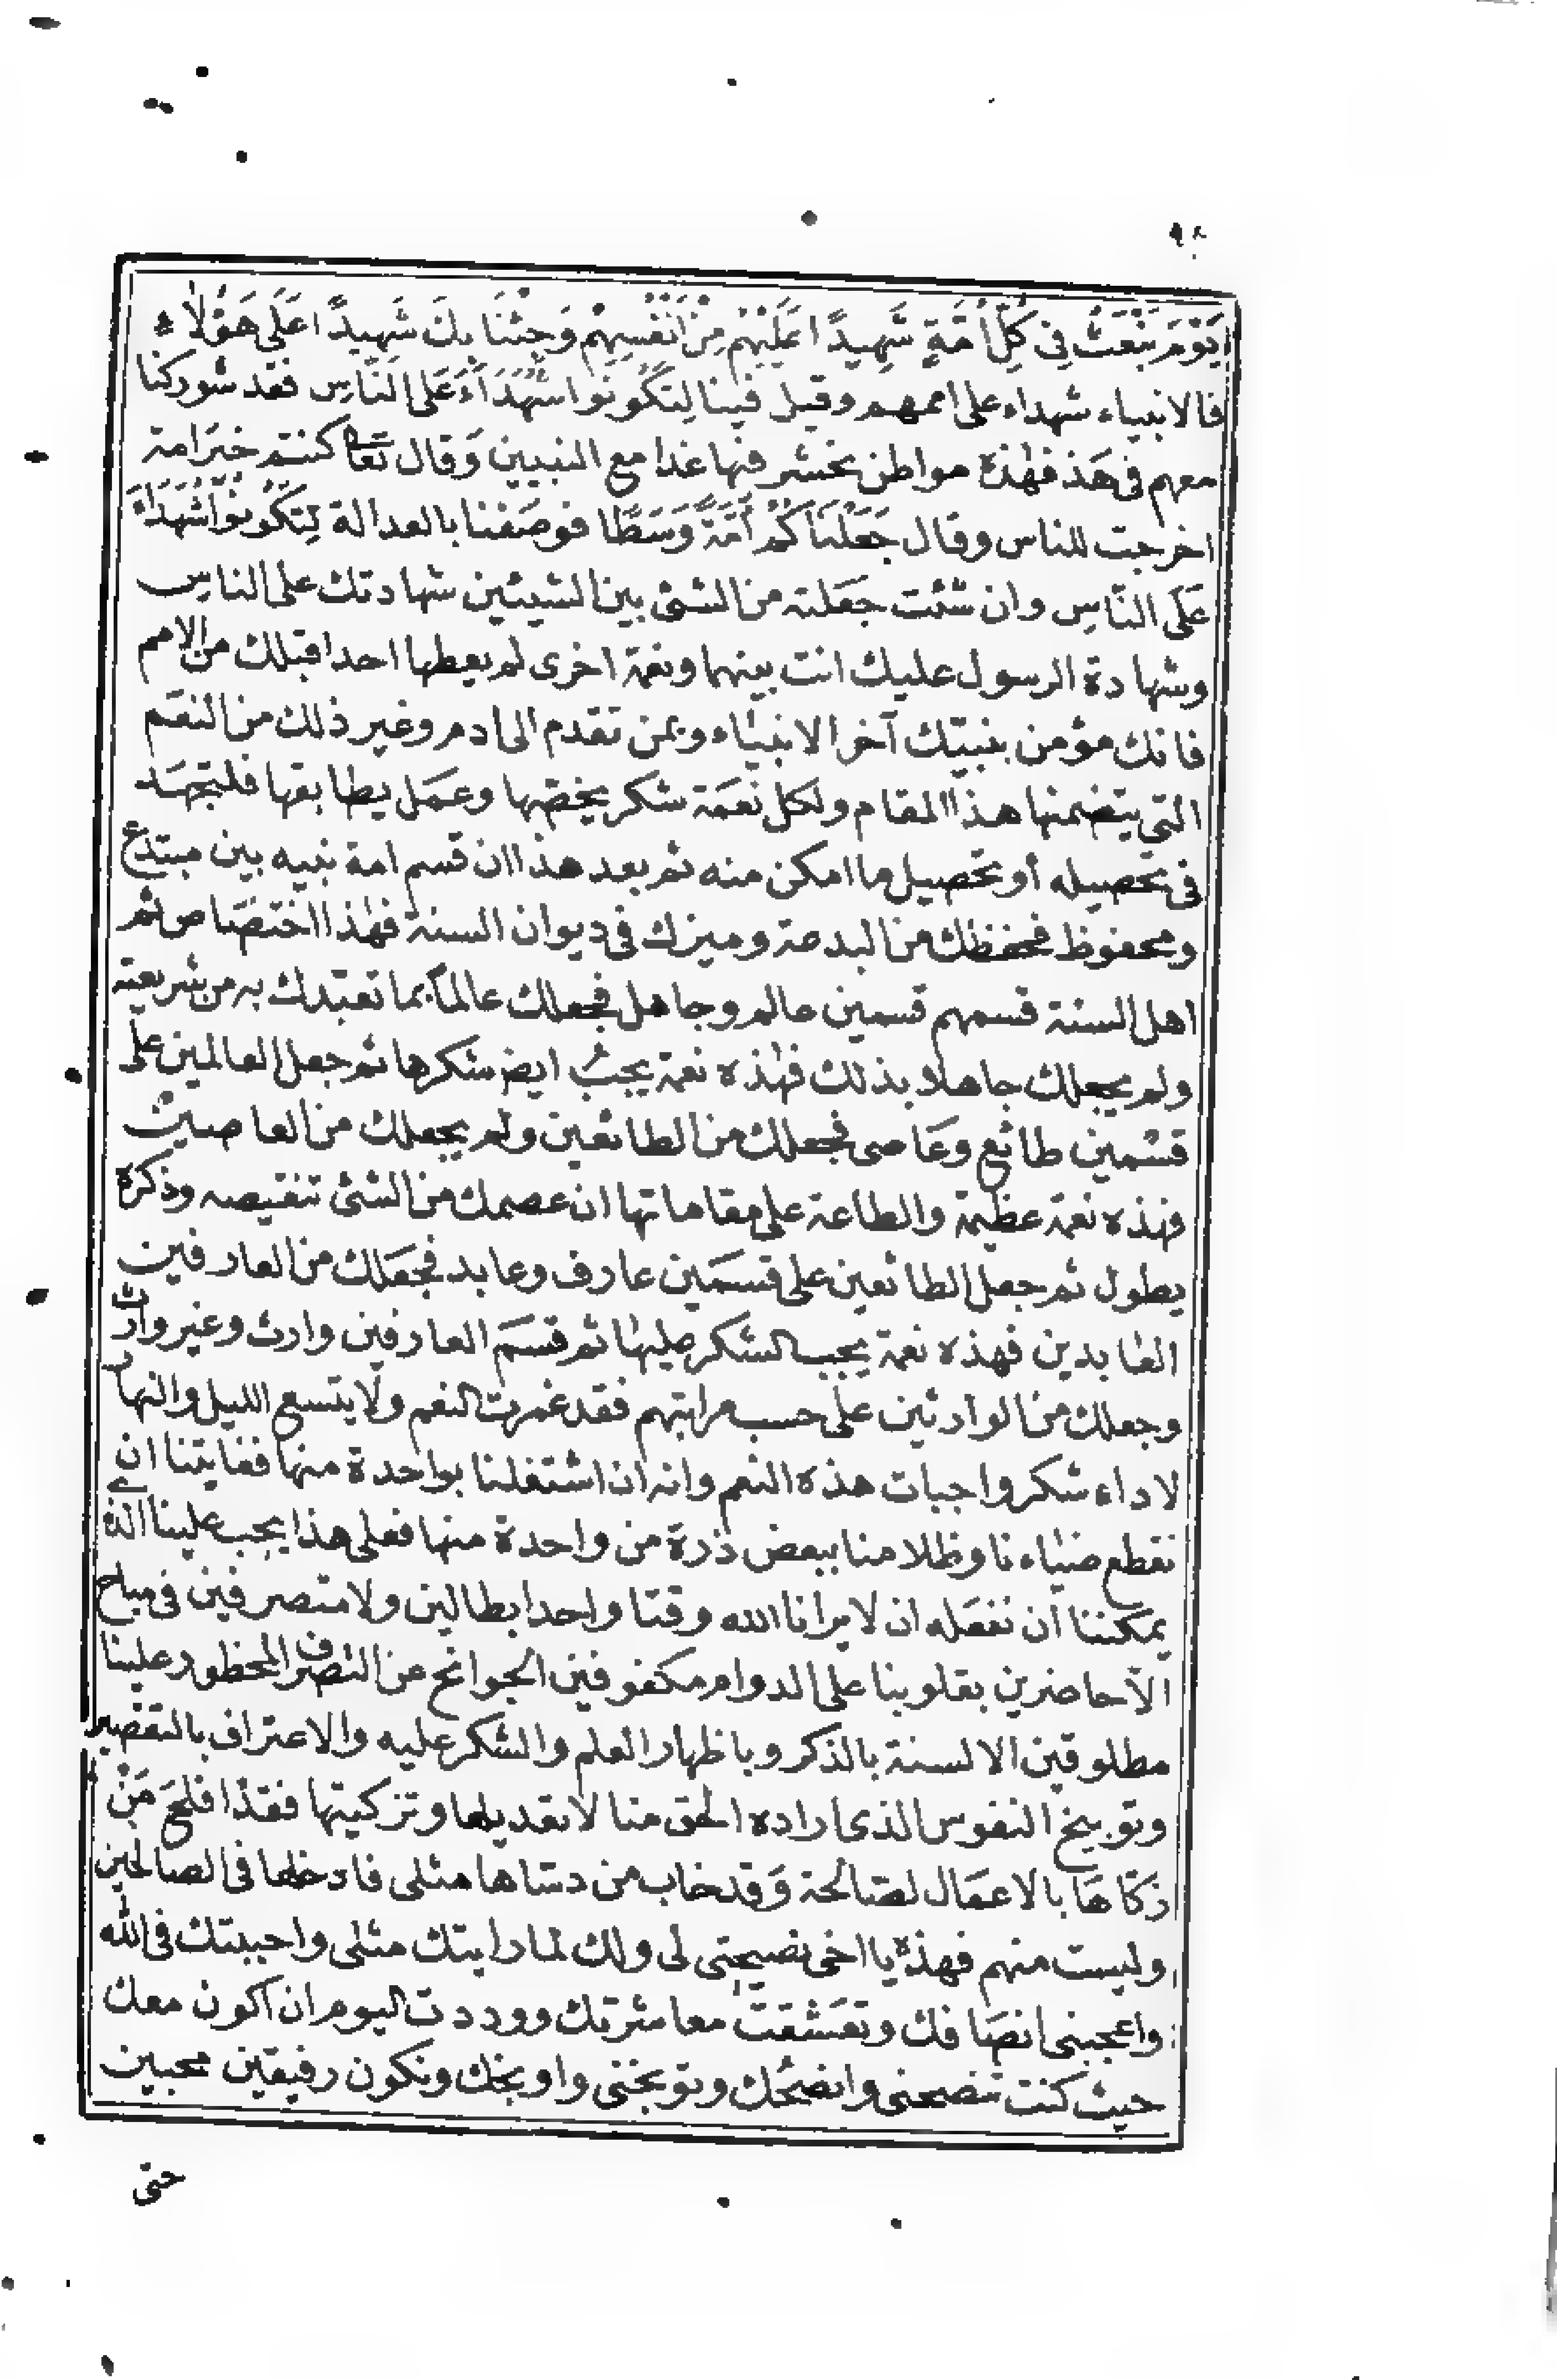 ٩٤
يَوْمَ نَبْعَثُ فِي كُلِّ أُمَّةٍ شَهِيدًا عَلَيْهِمْ مِنْ أَنْفُسِهِمْ وَجِئْنَا بِكَ شَهِيدًا عَلَى هَؤُلَاءِ
فالانبياء شهداء على اممهم وقيل فينا لِتَكُونُوا شُهَدَاءَ عَلَى النَّاسِ فقد شوركنا
معهم في هذ فهذه مواطن نحشر فيها غدا مع النبيين وَقال تعا كنتم خير امة
اخرجت للناس وقال جَعَلْنَاكُمْ أُمَّةً وَسَطًا فوصفنا بالعدالة لِتَكُونُوا شُهَدَاءَ
عَلَى النَّاسِ وان شئت جعلته من الشئ بين الشيئين شهادتك على الناس
وشهادة الرسول عليك انت بينهما ونعمة اخرى لم يعطها احدا قبلك من الامم
فانك مؤمن بنبيّك آخر الانبياء وبمن تقدم الى ادم وغير ذلك من النعم
التي يتضمنها هذا المقام ولكل نعمة شكر يخصها وعمل يطابقها فلتجهد
في تحصيله أو تحصيل ما امكن منه ثم بعد هذا ان قسم امة نبيه بين مبتدع
ومحفوظ فحفظك من البدعة وميزك في ديوان السنة فهذا اختصاص ثم
اهل السنة قسمهم قسمين عالم وجاهل فجعلك عالماً بما تعبّدك به من شريعته
ولم يجعلك جاهلا بذلك فهذه نعمة يجب ايض شكرها ثم جعل العالمين على
قسمين طائع وعاصى فجعلك من الطائعين ولم يجعلك من العاصين
فهذه نعمة عظيمة والطاعة على مقاماتها ان عصمك من الشئ تنقيصه وذكره
يطول ثم جعل الطائعين على قسمَين عارف وعابد فجعَلك من العارفين
العابدين فهذه نعمة يجب الشكر عليها ثم قسم العارفين وارث وغير وارث
وجعلك من الوارثين على حسب مراتبهم فقد غمرت النعم ولا يتسع الليل والنهار
لاداء شكر واجبات هذه النعم وانه ان اشتغلنا بواحدة منها فغايتنا ان
نقطع ضياءنا وظلامنا ببعض ذرة من واحدة منها فعلى هذا يجب علينا الذى
يمكننا ان نفعله ان لا يرانا الله وقتا واحدا بطالين ولا متصرفين في مباح
الّا حاضرين بقلوبنا على الدوام مكفوفين الجوانح عن التصرف المحظور علينا
مطلوقين الالسنة بالذكر وباظهار العلم والشكر عليه والاعتراف بالتقصير
وتوبيخ النفوس الذى اراده الحق منا لا تعديلها وتزكيتها فقد افلح مَنْ
زكّاها بالاعمال الصالحة وَقد خاب من دسّاها مثلى فادخلها في الصالحين
وليست منهم فهذه يا اخى نصيحتى لى ولك لما رايتك مثلى واحببتك في الله
واعجبنى انصافك وتعشقت معاشرتك ووددت اليوم ان اكون معك
حيث كنت تنصحنى وانصحك وتوبخنى واوبخك ونكون رفيقين محبين
حتى